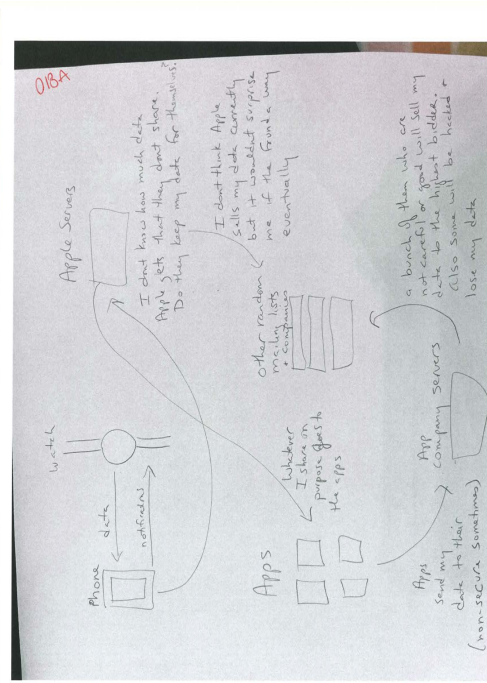 01BA
Watch
Phone
data
notifications
Apple Servers
I dont know how much data
Apple gets that they dont share.
Do they keep my data for themselves?
I dont think Apple
sells my data currently
but it wouldnt surprise
me if the found a way
eventually
Apps
Whatever
I share on
purpose goes to
the apps
other random
mailing lists
+ companies
Apps
send my
data to their
(non-secure sometimes)
App
Company Servers
a bunch of them who are
not careful or good will sell my
data to the highest bidder.
Also some will be hacked +
lose my data